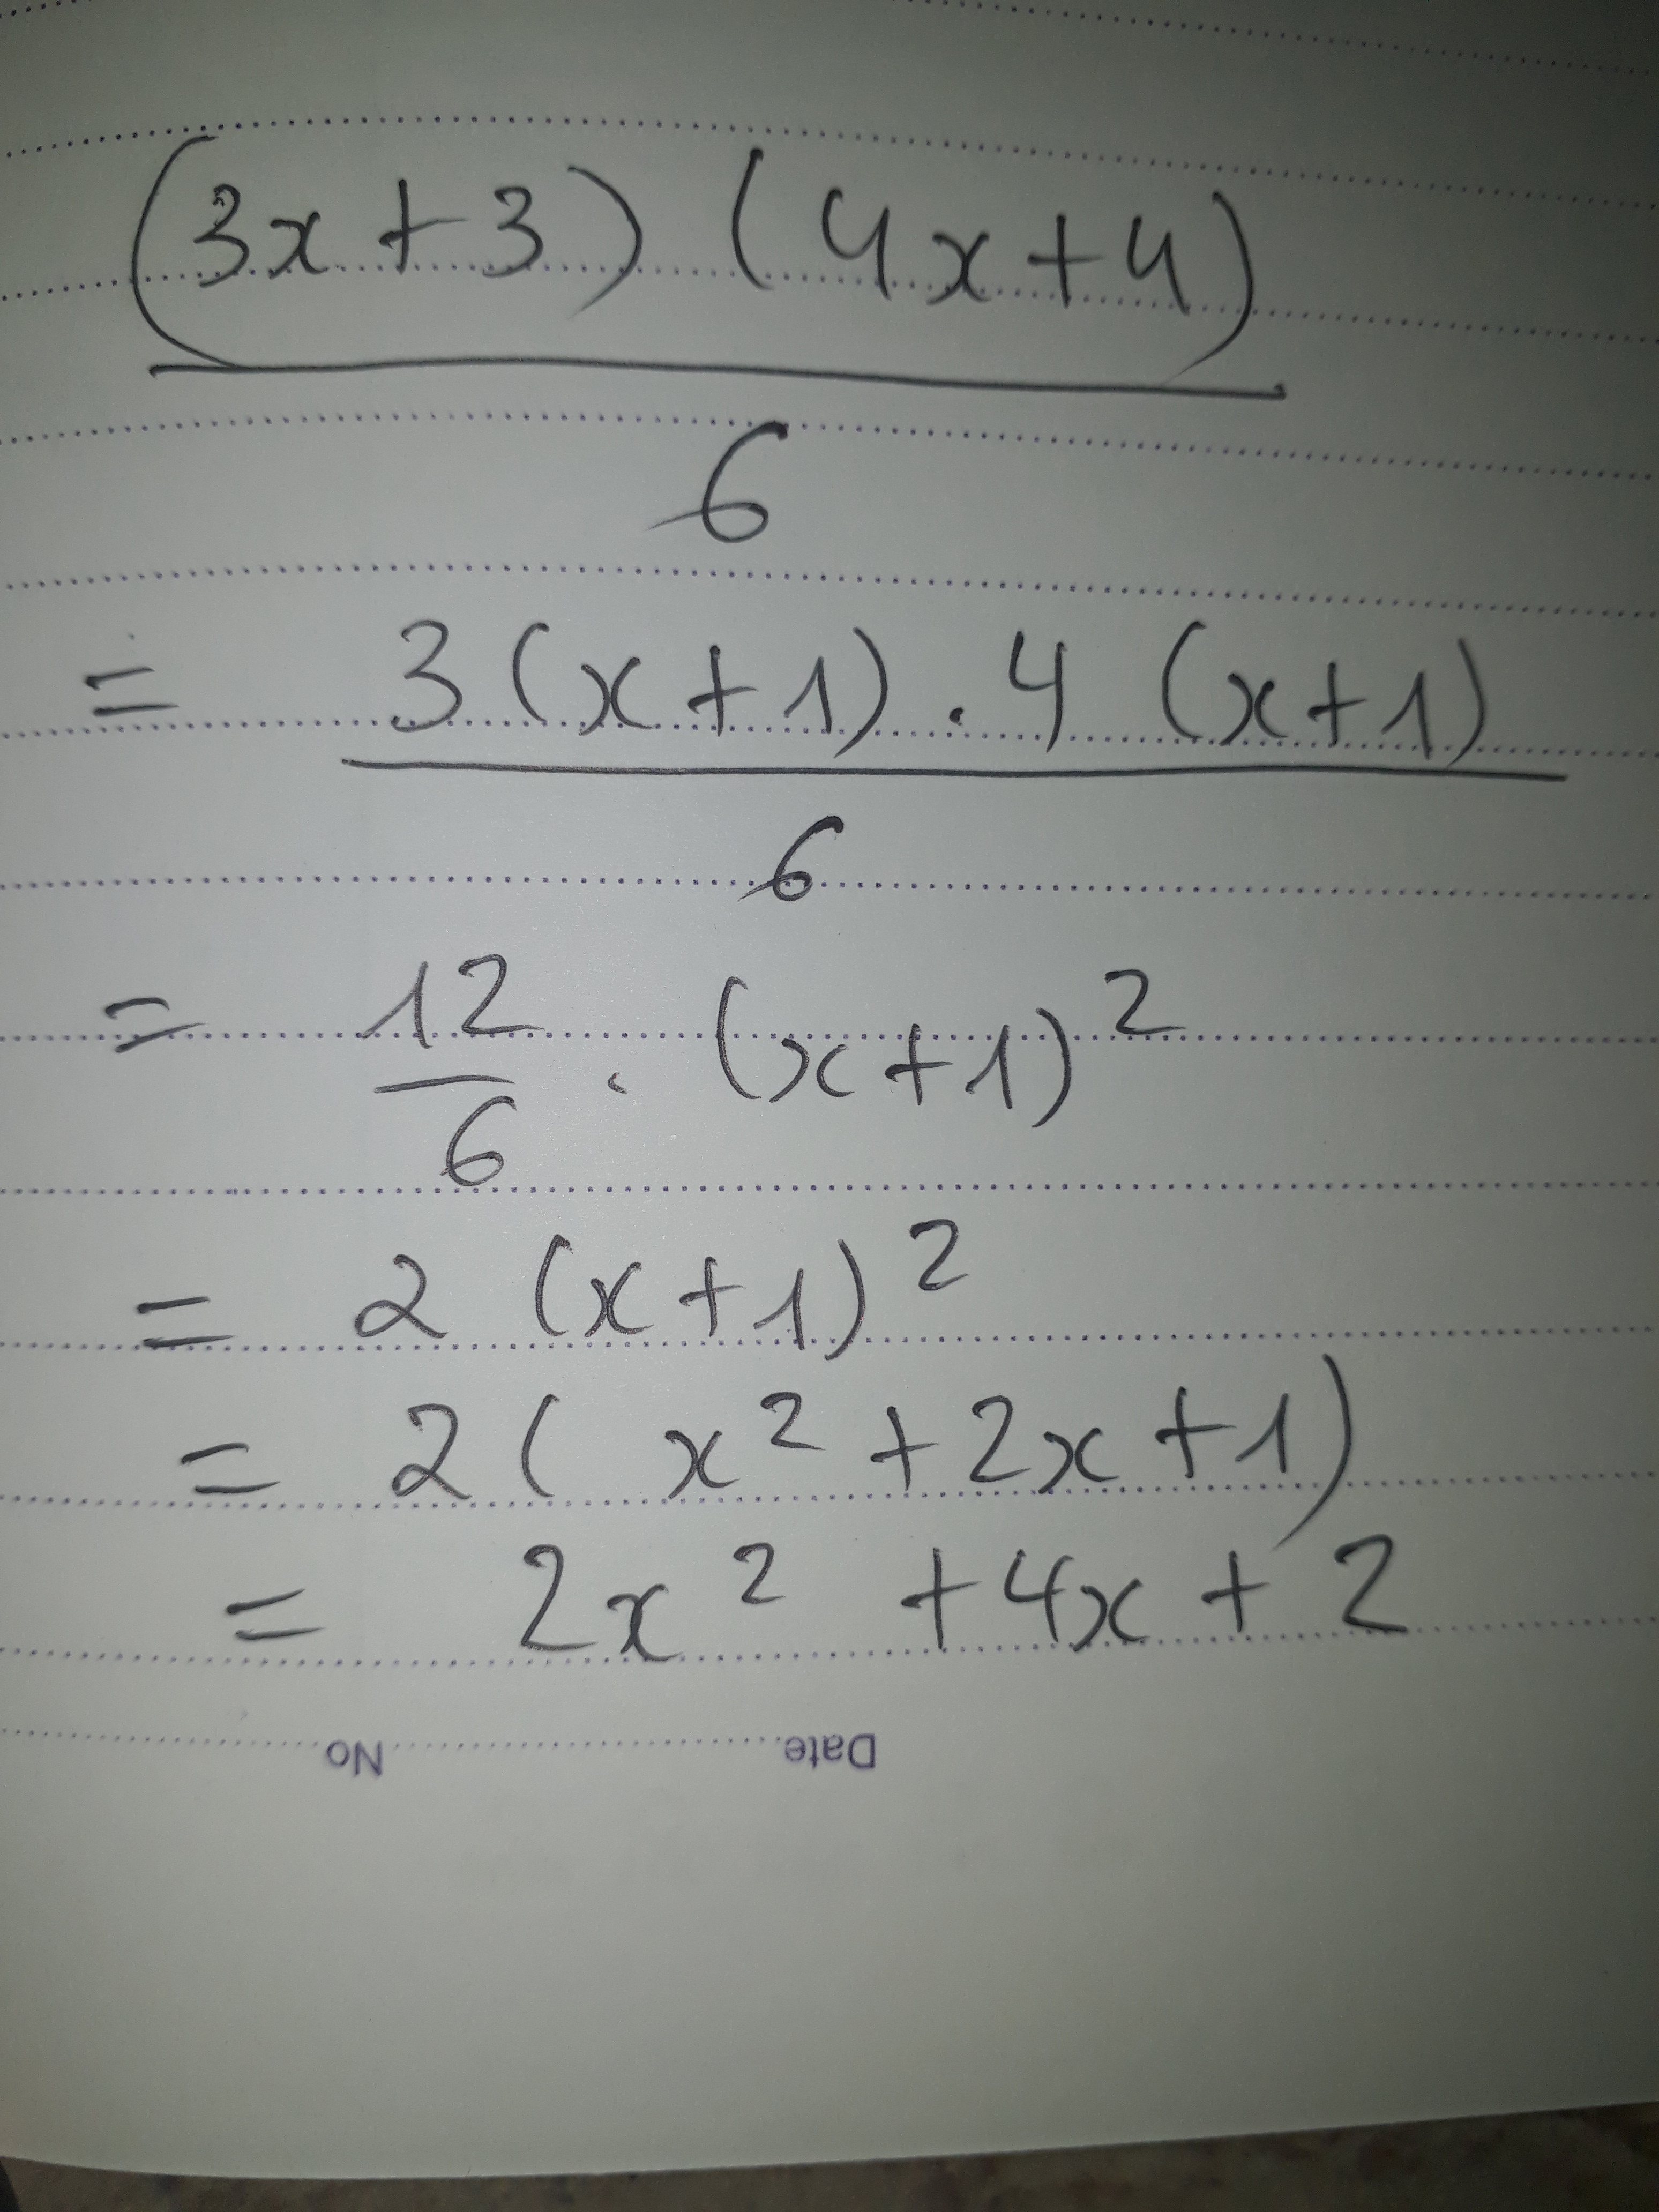 (3x+3) (4x+4)
6
= 3(x+1) . 4 (x+1)
6
= 12/6 . (x+1)²
= 2 (x+1)²
= 2( x² +2x+1)
= 2x² +4x+2
Date No